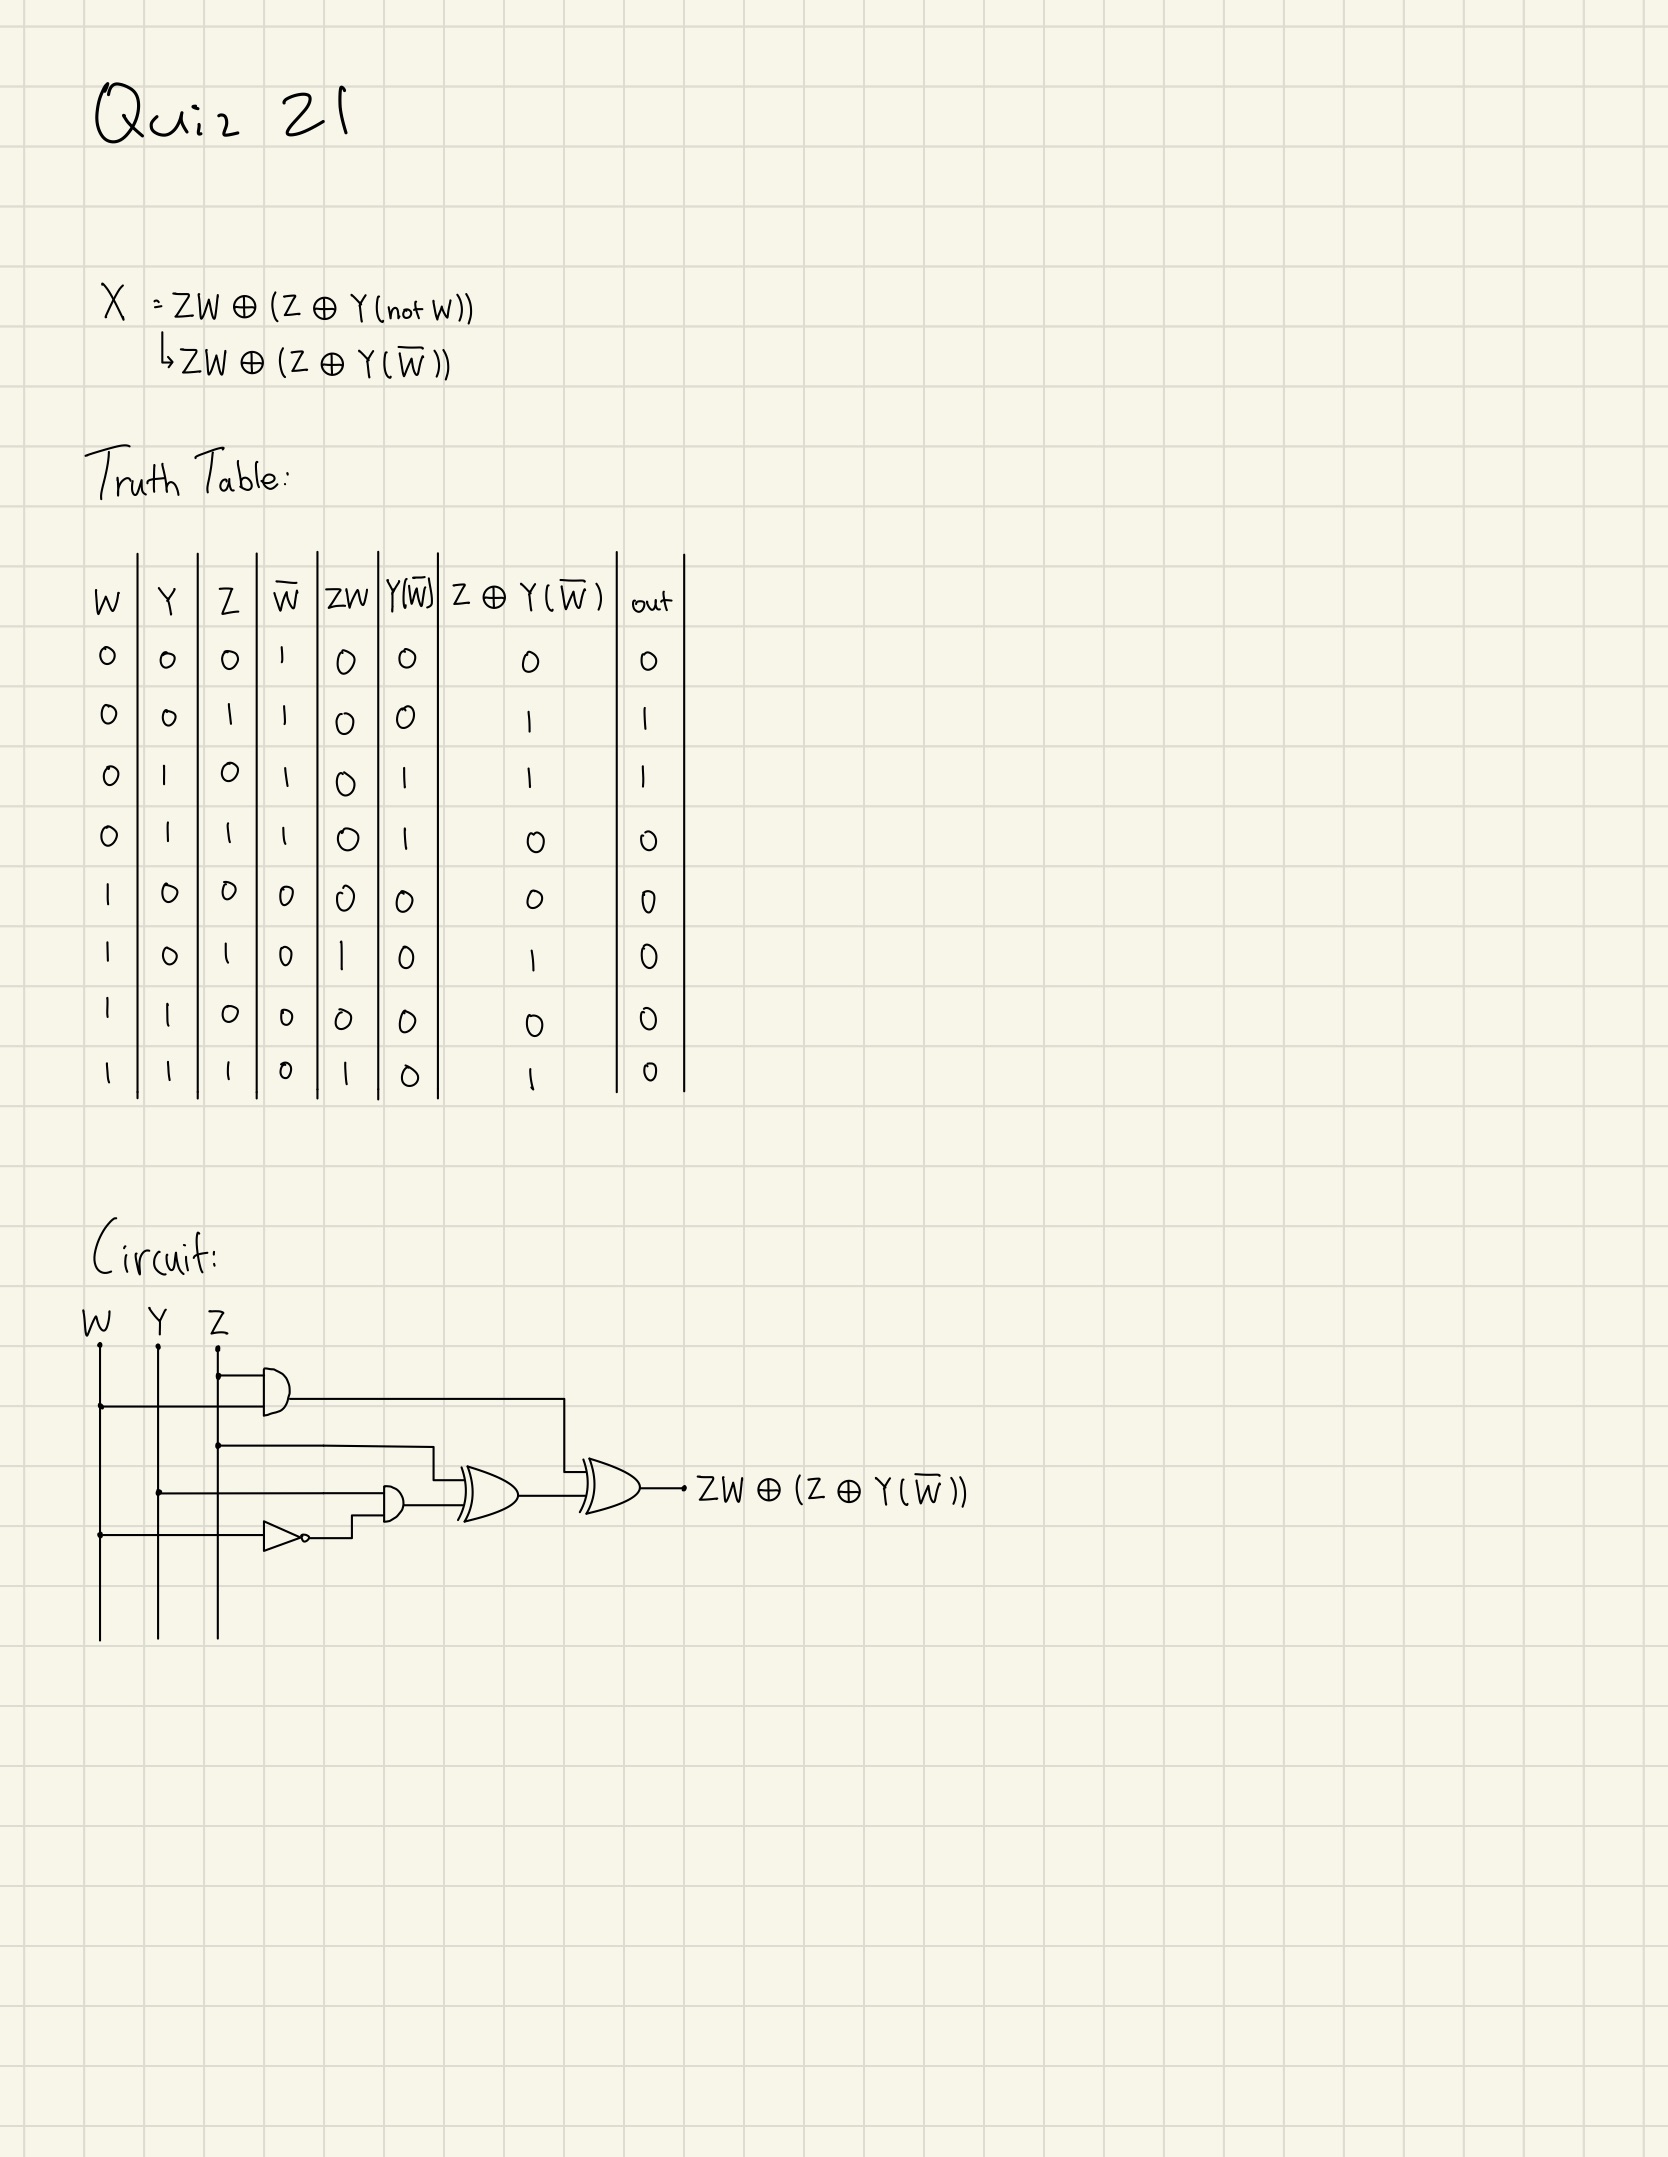 Quiz 21
X = ZW ⊕ (Z ⊕ Y(not W))
↳ ZW ⊕ (Z ⊕ Y(W̅))
Truth Table:
W Y Z W̅ ZW Y(W̅) Z ⊕ Y(W̅) out
0 0 0 1 0 0 0 0
0 0 1 1 0 0 1 1
0 1 0 1 0 1 1 1
0 1 1 1 0 1 0 0
1 0 0 0 0 0 0 0
1 0 1 0 1 0 1 0
1 1 0 0 0 0 0 0
1 1 1 0 1 0 1 0
Circuit:
W Y Z
ZW ⊕ (Z ⊕ Y(W̅))